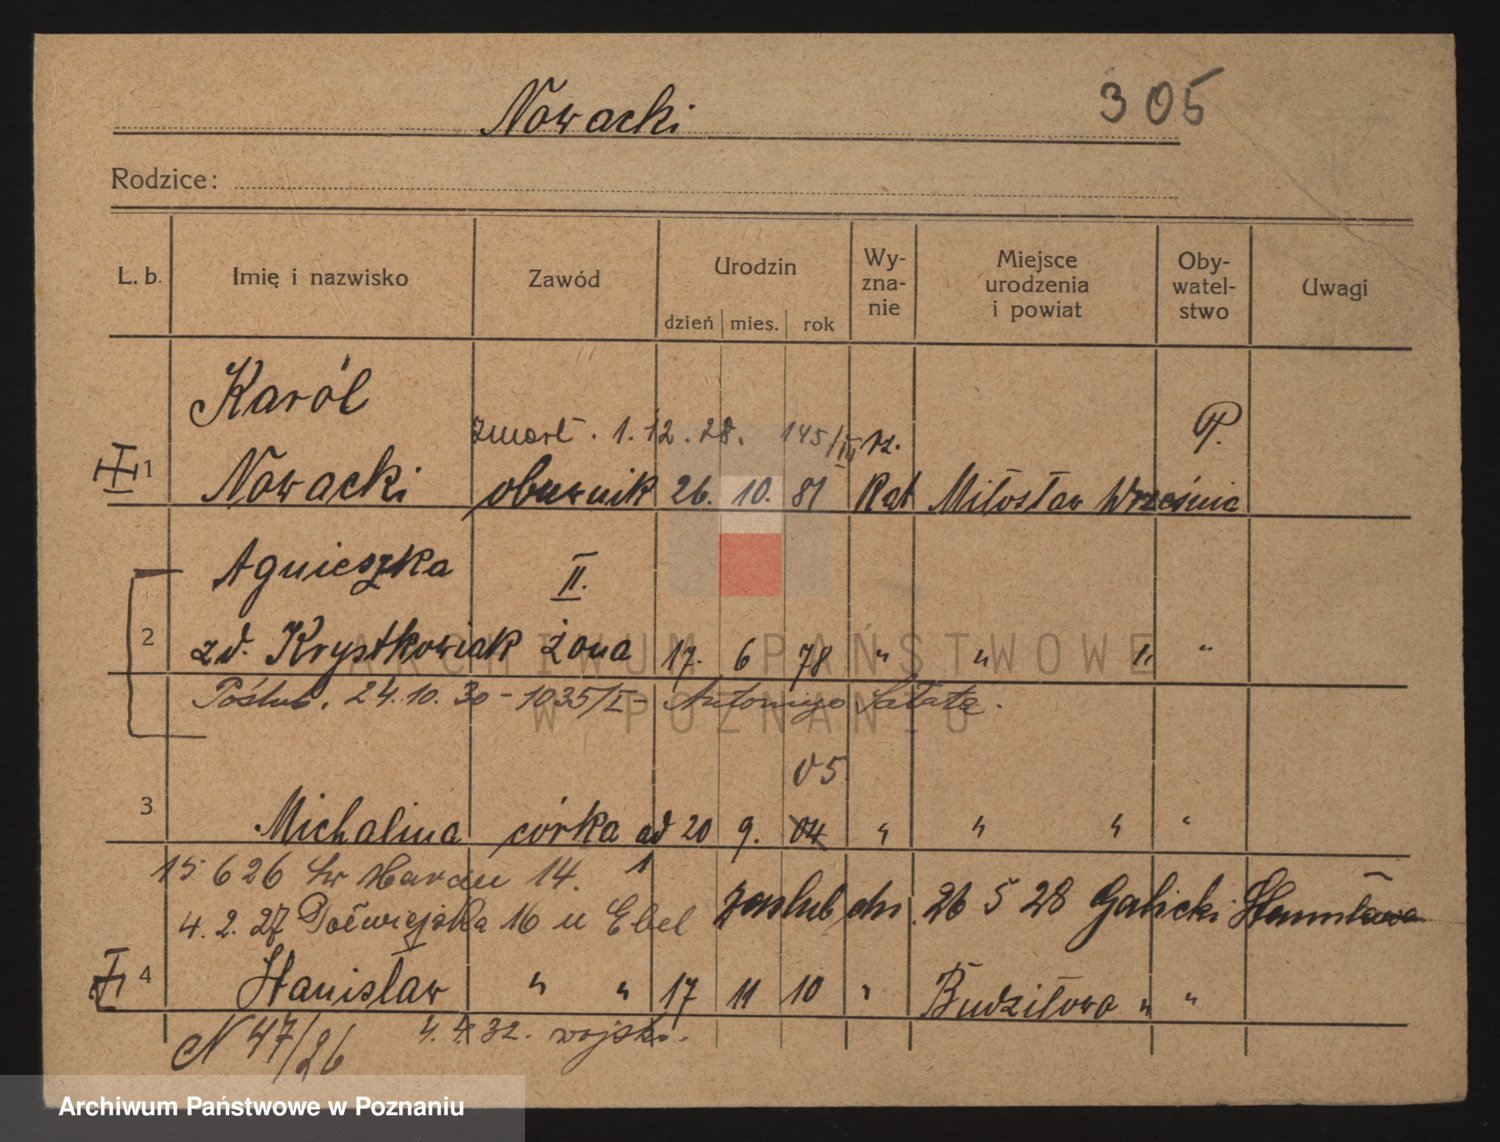 Nowacki 305
Rodzice:
L. b. Imię i nazwisko Zawód Urodzin dzień mies. rok Wy-zna-nie Miejsce urodzenia i powiat Oby-watel-stwo Uwagi
Karól
zmarł. 1.12.28. 145/III P.
1 Nowacki obuwnik 26. 10. 81 Kat Miłosław Września
Agnieszka II.
2 zd. Krystkowiak żona 17. 6 78 " " " "
Poślub. 24.10.30 - 1035/I - Antoniego Sałata.
05
3 Michalina córka ad 20 9. 04 " " " "
15 6 26 Św Marcin 14. 1
4. 2. 27 Półwiejska 16 u Ebel zaślub dn. 26 5 28 Galicki Stanisława
4 Stanisław " " 17 11 10 " Budziłowo " "
N 47/26 4.4.32. wojsk.
ARCHIWUM PAŃSTWOWE
W POZNANIU
Archiwum Państwowe w Poznaniu